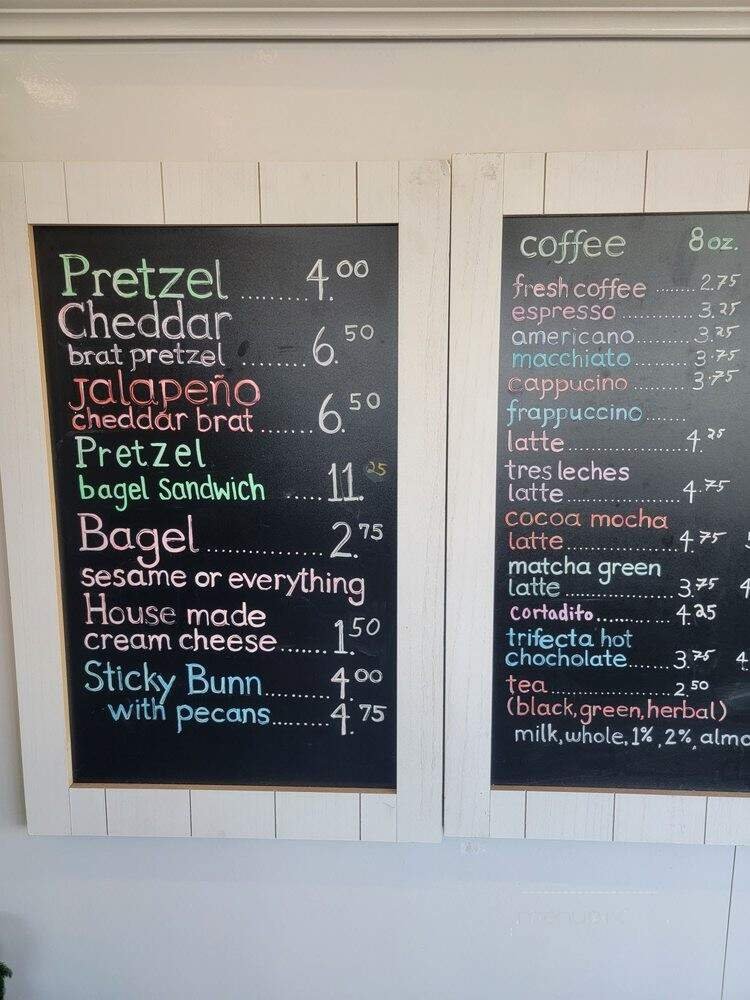 Pretzel ........ 4.00
Cheddar
brat pretzel ......... 6.50
Jalapeño
cheddar brat ....... 6.50
Pretzel
bagel Sandwich ...... 11.25
Bagel................ 2.75
sesame or everything
House made
cream cheese....... 1.50
Sticky Bunn.......... 4.00
with pecans........ 4.75
coffee 8oz.
fresh coffee ...... 2.75
espresso ........... 3.25
americano......... 3.25
macchiato ......... 3.75
cappucino......... 3.75
frappuccino......
latte................. 4.25
tres leches
latte................. 4.75
cocoa mocha
latte................. 4.75
matcha green
latte................. 3.75 4
cortadito........... 4.25
trifecta hot
chocholate....... 3.75 4.
tea.................... 2.50
(black, green, herbal)
milk, whole, 1%, 2%, almo